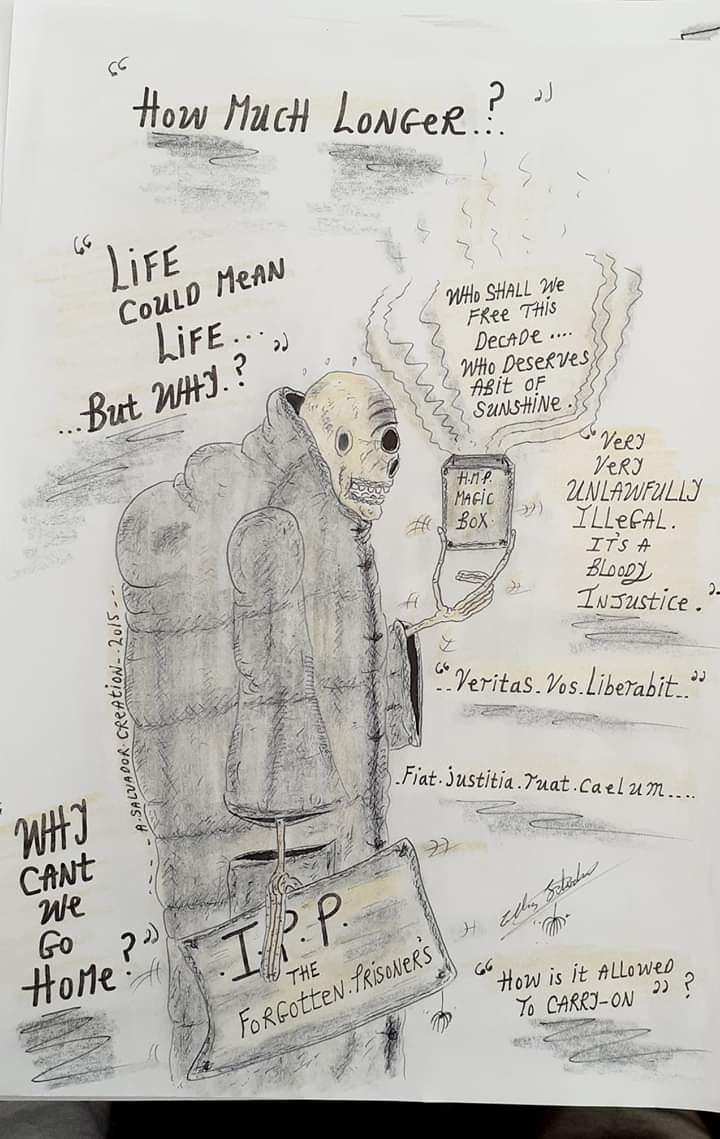 “ How Much Longer..? ”
“ Life
Could Mean
Life...
...But Why.? ”
Who Shall We
Free This
Decade ....
Who Deserves
Abit of
Sunshine.
H.M.P.
Magic
Box.
“ Very
Very
Unlawfully
Illegal.
It's a
Bloody
Injustice. ”
“ ..Veritas.Vos.Liberabit.. ”
.Fiat.justitia.ruat.caelum....
A.Salvador.Creation-.2015...
Why
Cant
We
Go
Home? ”
.I.P.P.
The
Forgotten.Prisoner's
“ How is it Allowed
To Carry-on ” ?